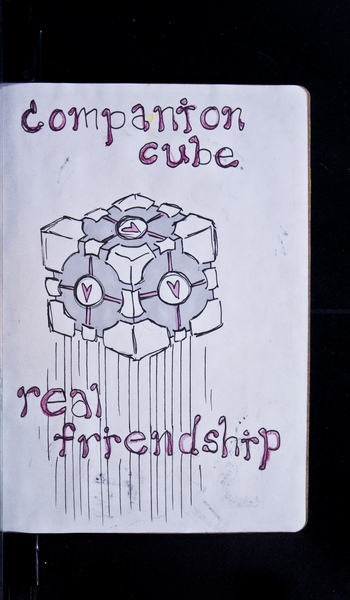 companion
cube
real
friendship